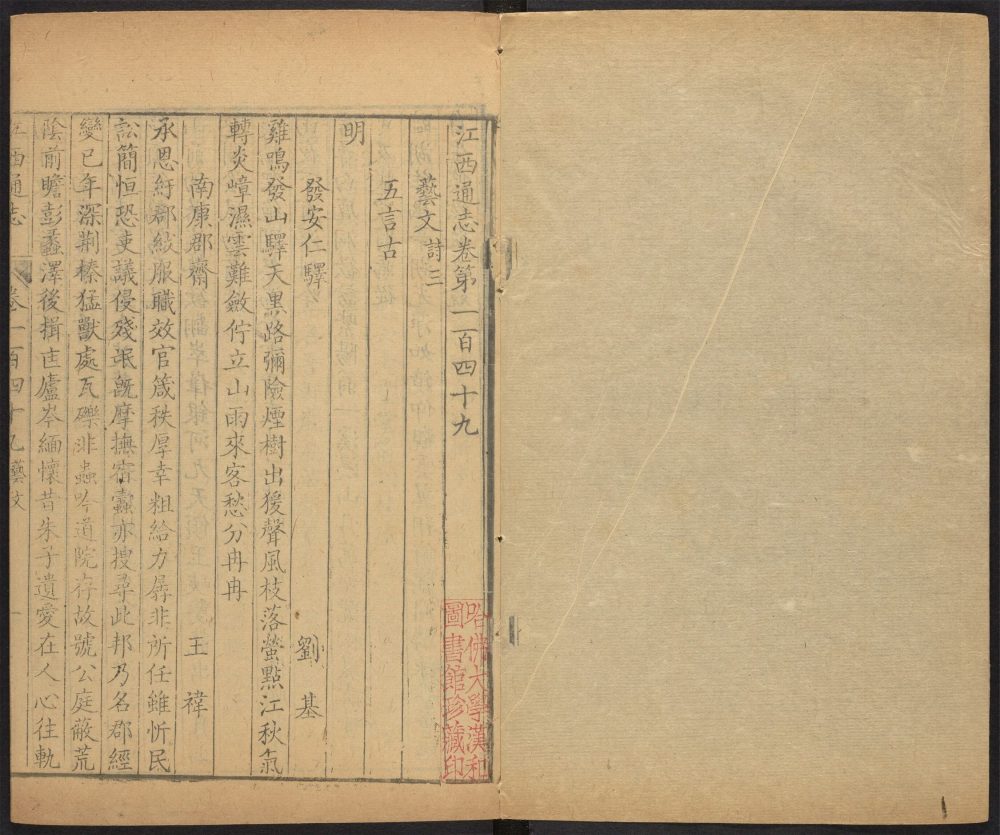 江西通志卷第一百四十九
藝文 詩三
五言古
明
發安仁驛 劉基
雞鳴發山驛天黑路彌險煙樹出猨聲風枝落螢點江秋氣
轉炎嶂濕雲難斂佇立山雨來客愁分冉冉
南康郡齋 王褘
承恩紆郡紱服職效官箴秩厚幸粗給力孱非所任雖忻民
訟簡恒恐吏議侵殘氓旣摩撫宿蠹亦搜尋此邦乃名郡經
變已年深荆榛猛獸處瓦礫非蟲吟道院存故號公庭蔽荒
陰前瞻彭蠡澤後揖匡廬岑緬懷昔朱子遺愛在人心往軌
江西通志 卷一百四十九 藝文 一
哈佛大學漢和
圖書館珍藏印